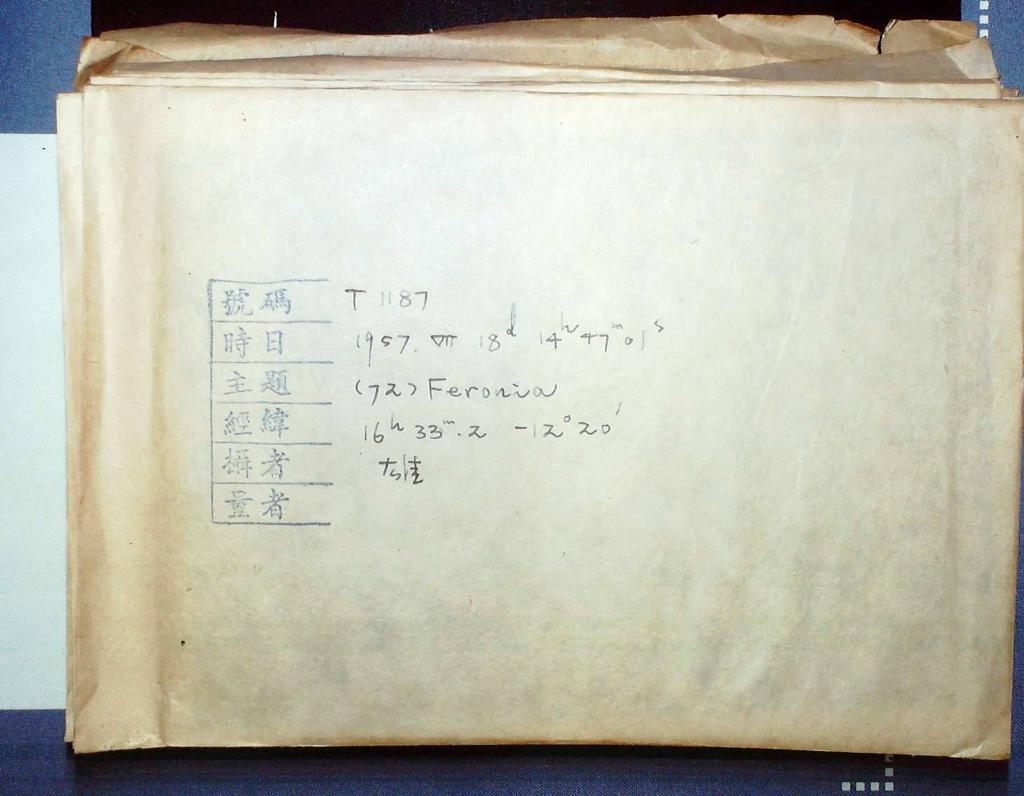 號碼 T 1187
時日 1957. Ⅶ 18ᵈ 14ʰ 47ᵐ 01ˢ
主題 (72) Feronia
經緯 16ʰ 33ᵐ.2 -12°20'
攝者
量者